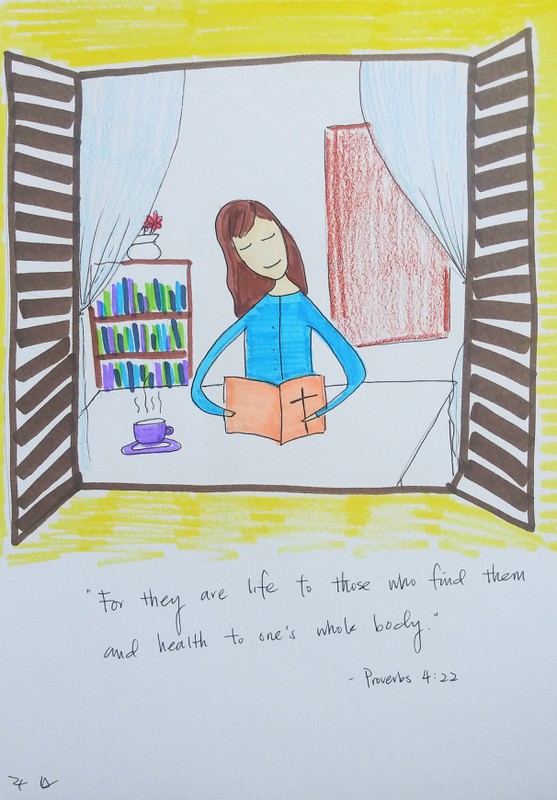 "For they are life to those who find them
and health to one's whole body."
- Proverbs 4:22